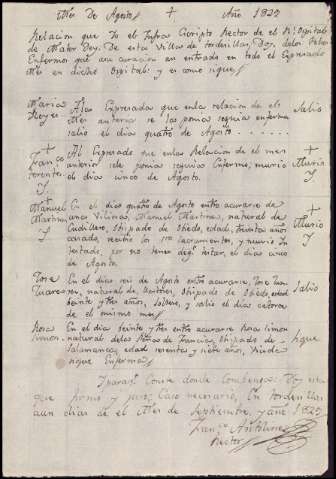 Mes De Agosto + Año 1829
Relacion que Yo el Infra Scripto Rector de el Rl. Ospital
de Mater Dey, De esta Villa de tordesillas, Doy, de los Pobres
Enfermos que a su curacion an entrado en todo el Expresado
Mes en dicho Ospital; y es como sigue
Maria
Reyes
A la Expresada que en la relacion de el
Mes anterior se la ponia seguia enferma
salio el dia quatro de Agosto
Salio
+
Franco
Al Expresado que en la Relacion de el mes
anterior se le ponia seguia Enfermo, murio
el dia cinco de Agosto.
+
Murio
Manuel
Martinez
En el dia quatro de Agosto entro a curarse de
Manuel Martinez, natural de
Cudillero, Obispado de Obiedo, edad, treinta años
casado, recibio los Stos Sacramentos, y murio In
testado, por no tener de q. testar, el dia cinco
de Agosto
+
Murio
Jose
Suarez
En el dia seis de Agosto entro a curarse, Jose Sua
rez, natural de Obispado de Obiedo, edad
beinte y tres años, soltero, y salio el dia catorce
de el mismo mes
Salio
Rosa
simon
En el dia beinte y tres entro a curarse Rosa simon
natural de la Peña de Francia, Obispado de
Salamanca, edad sesenta y siete años, Viuda
sigue Enferma
Sigue
Y para que Conste donde Combenga: Doy esta
que firmo y juro, caso necesario, En tordesillas
a un dias de el Mes de Septiembre, y año 1829
Franco Antolinez
Rector